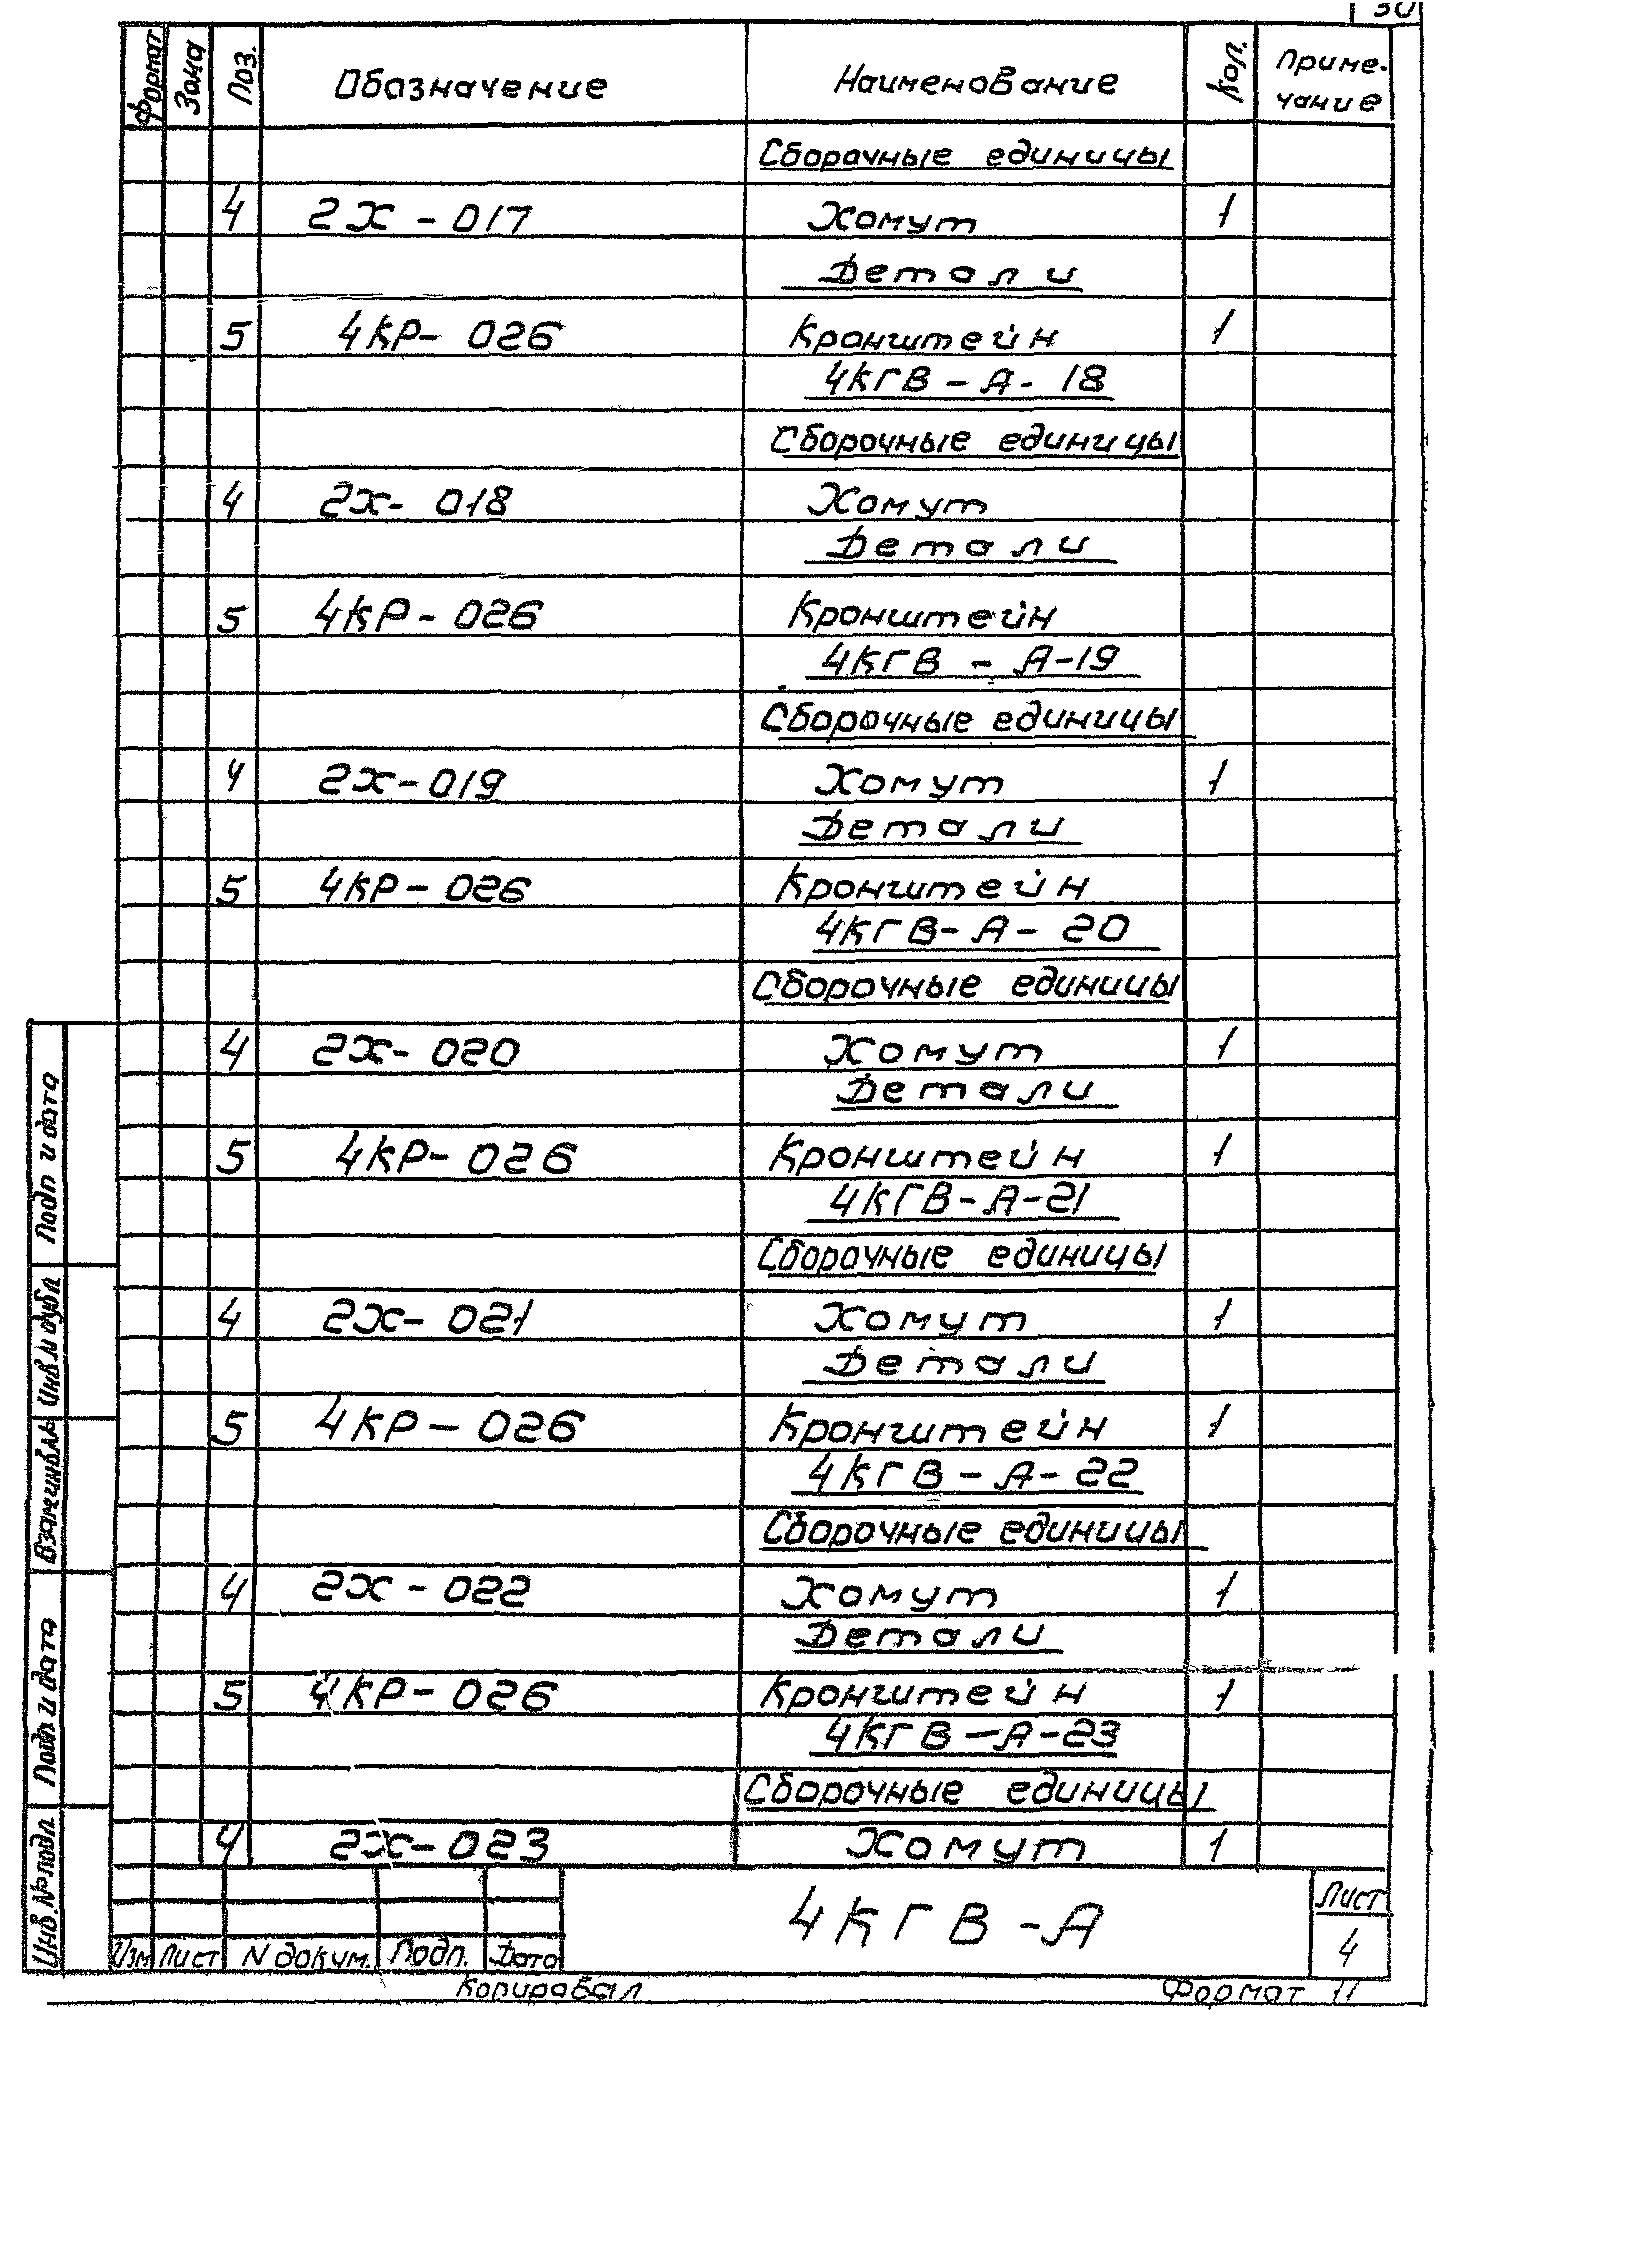 30
Формат Зона Поз. Обозначение Наименование Кол. Приме-
чание
Сборочные единицы
4 2Х - 017 Хомут 1
Детали
5 4КР- 026 Кронштейн 1
4КГВ - А- 18
Сборочные единицы
4 2Х- 018 Хомут
Детали
5 4КР - 026 Кронштейн
4КГВ - А-19
Сборочные единицы
4 2Х-019 Хомут 1
Детали
5 4КР - 026 Кронштейн
4КГВ- А - 20
Сборочные единицы
4 2Х- 020 Хомут 1
Детали
5 4КР- 026 Кронштейн 1
4КГВ-А-21
Сборочные единицы
4 2Х- 021 Хомут 1
Детали
5 4КР - 026 Кронштейн 1
4КГВ - А- 22
Сборочные единицы
4 2Х - 022 Хомут 1
Детали
5 4КР - 026 Кронштейн 1
4КГВ - А-23
Сборочные единицы
4 2Х-023 Хомут 1
Подп и дата
Инв. N дубл
Взам инв.
Подп и дата
Инв. № подл
4КГВ - А
Лист
4
Изм Лист N докум. Подп. Дата
Копировал Формат 11